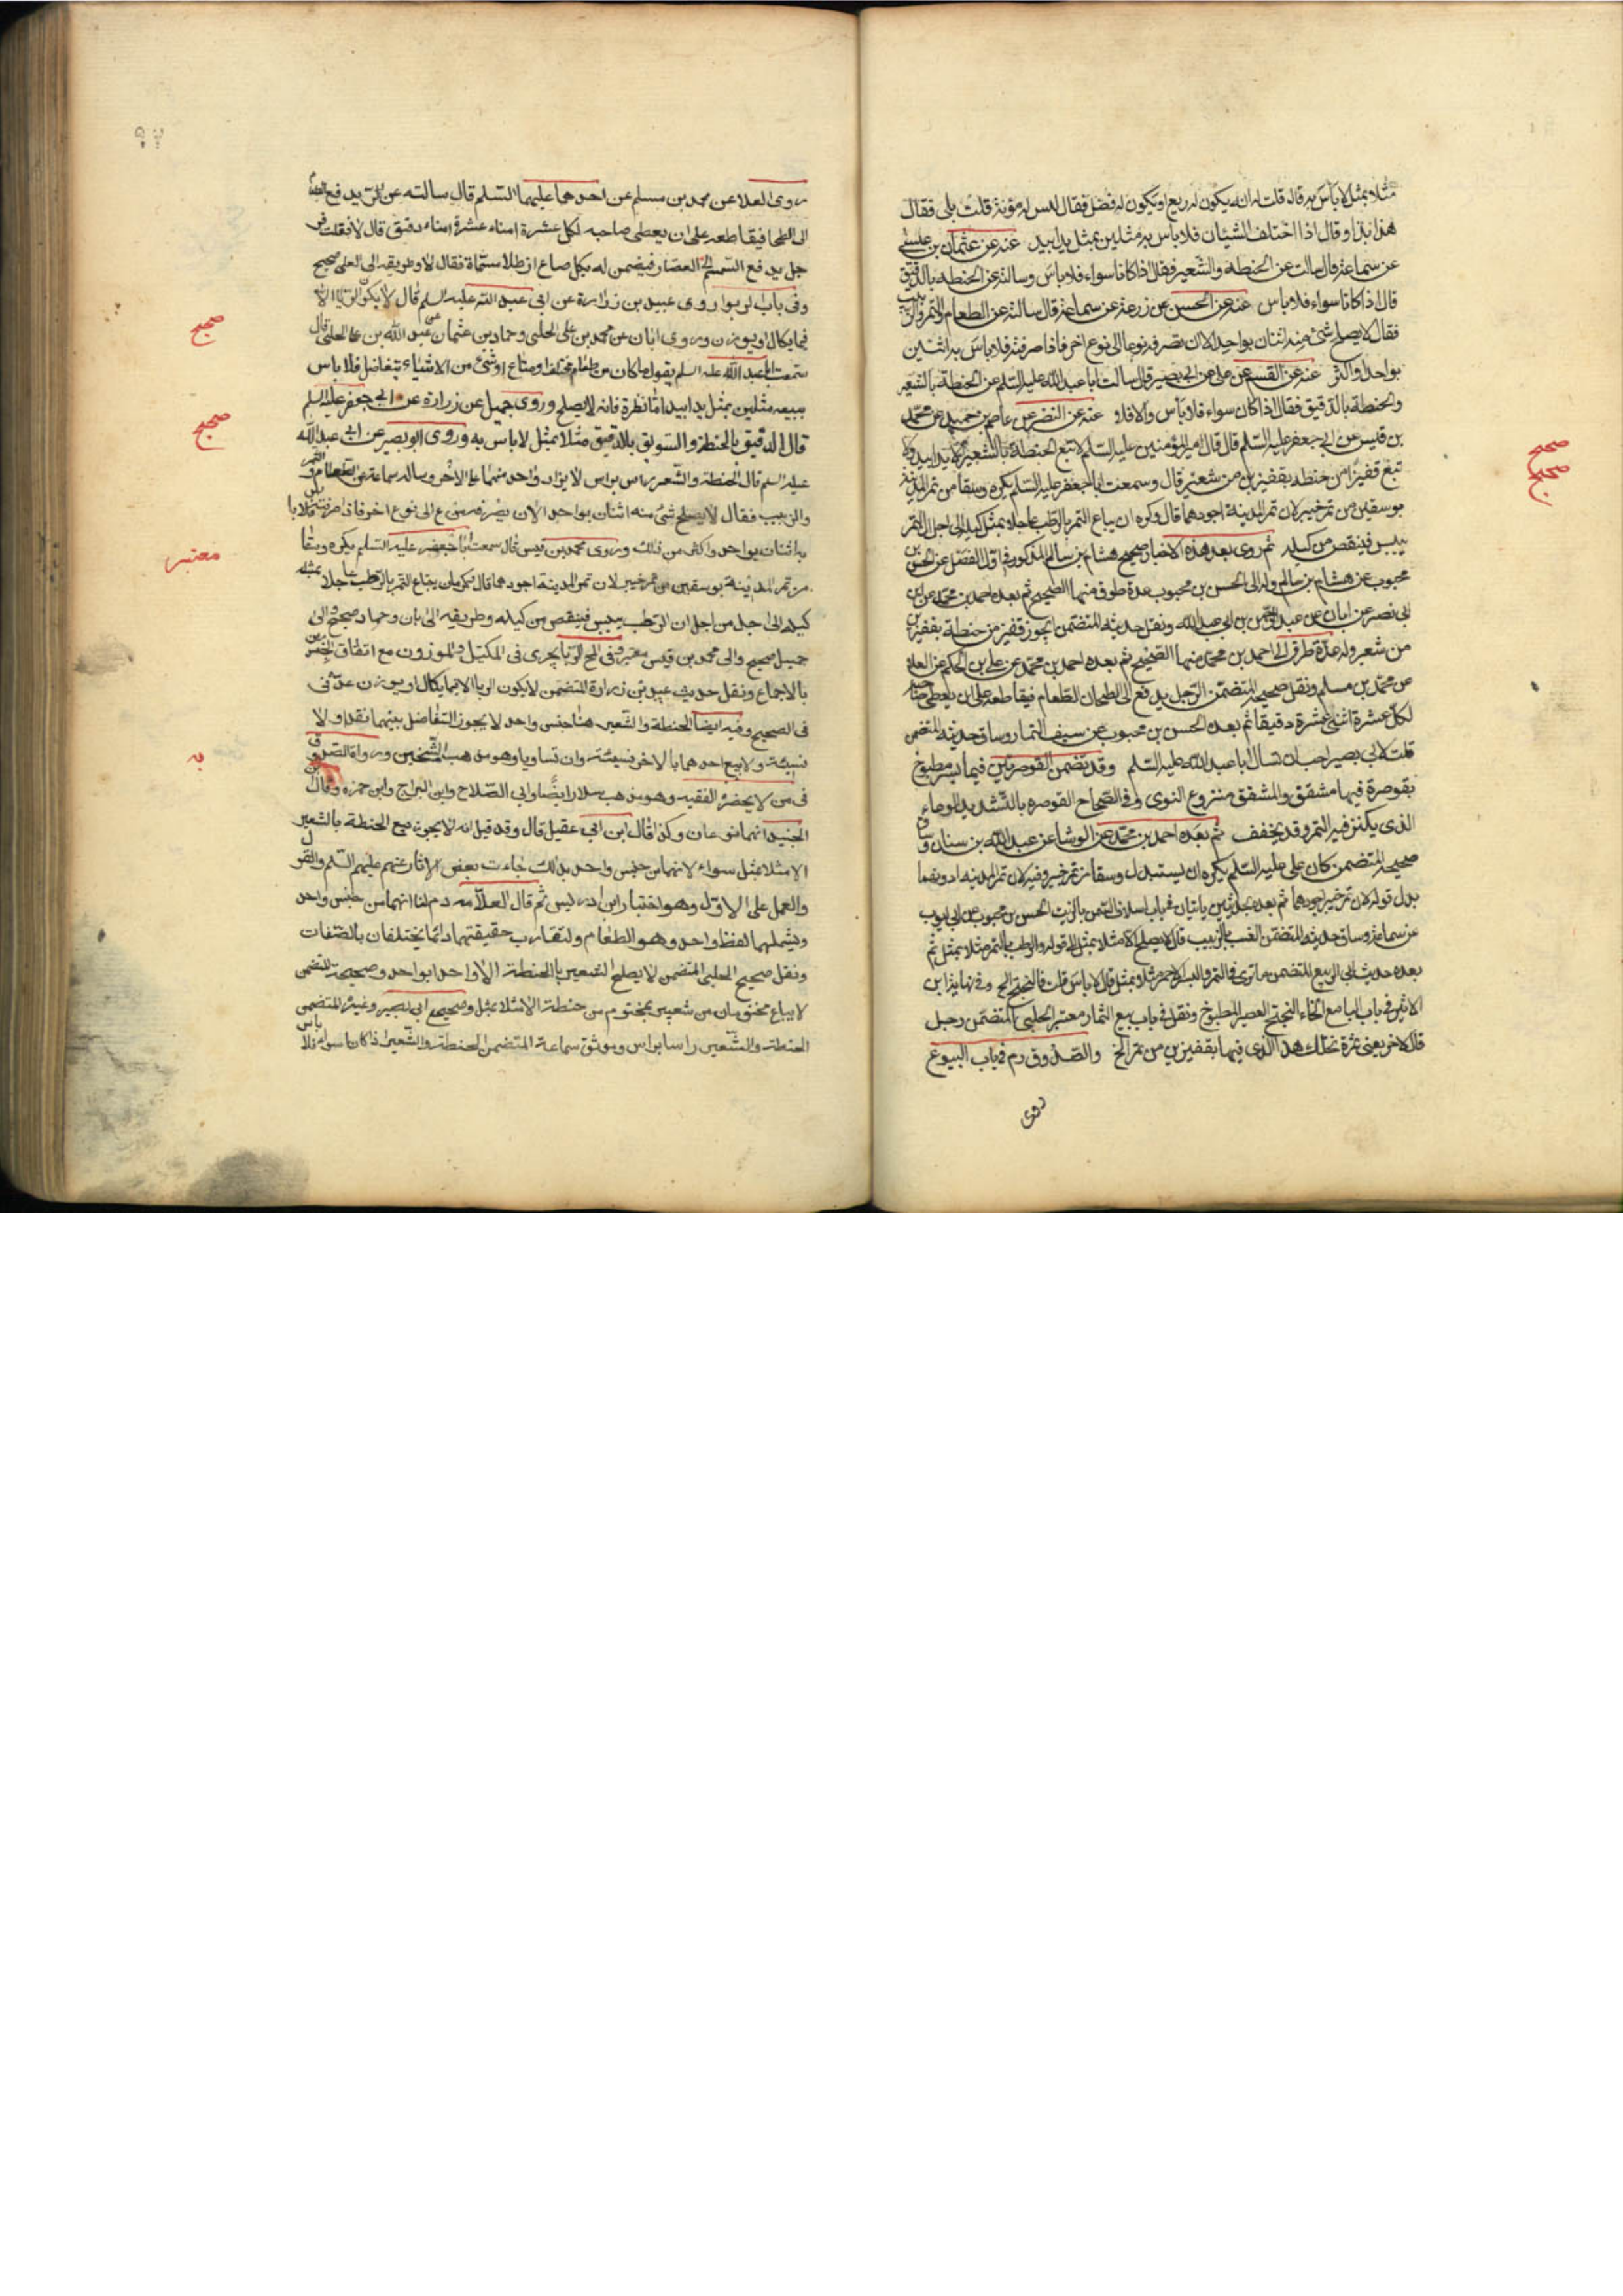 مثلا بمثل لا باس به قال قلت له انه يكون له ريع او يكون له فضل فقال ليس له مؤنة قلت بلى فقال
هذا بذا وقال اذا اختلف الشيئان فلا باس به مثلين بمثل يدا بيد عنه عن عثمان بن عيسى
عن سماعة قال سالت عن الحنطة والشعير فقال اذا كانا سواء فلا باس وسالته عن الحنطة بالدقيق
قال اذا كانا سواء فلا باس عنه عن الحسن عن زرعة عن سماعة قال سالته عن الطعام والتمر والزبيب
فقال لا يصلح شئ منه اثنان بواحد الا ان تصرفه نوعا الى نوع اخر فاذا صرفته فلا باس به اثنين
بواحد واكثر عنه عن القسم عن علي عن ابي بصير قال سالت ابا عبد الله عليه السلم عن الحنطة بالشعير
والحنطة بالدقيق فقال اذا كان سواء فلا باس والا فلا عنه عن النضر عن عاصم بن حميد عن محمد
بن قيس عن ابي جعفر عليه السلم قال قال امير المؤمنين عليه السلم لا تبع الحنطة بالشعير الا يدا بيد ولا
تبع قفيزا من حنطة بقفيزين من شعير قال وسمعت ابا جعفر عليه السلم يكره وسقا من تمر المدينة
بوسقين من تمر خيبر لان تمر المدينة اجودهما قال وكره ان يباع التمر بالرطب عاجلا بمثل كيله الى اجل لان التمر
ييبس فينقص من كيله ثم روى بعد هذه الاخبار صحيح هشام بن سالم المذكور في اول الفصل عن الحسن بن
محبوب عن هشام بن سالم وله الى الحسن بن محبوب عدة طرق منها الصحيح ثم بعده احمد بن محمد عن ابن
ابي نصر عن ابان عن عبد الرحمن بن ابي عبد الله ونقل حديثه المتضمن ايجوز قفيز من حنطة بقفيزين
من شعير وله عدة طرق الى احمد بن محمد منها الصحيح ثم بعده احمد بن محمد عن علي بن الحكم عن العلا
عن محمد بن مسلم ونقل صحيحه المتضمن الرجل يدفع الى الطحان الطعام فيقاطعه على ان يعطي صاحبه
لكل عشرة اثنى عشرة دقيقا ثم بعده الحسن بن محبوب عن سيف التمار وساق حديثه المتضمن
قلت لابي بصير احب ان تسال ابا عبد الله عليه السلم وقد تضمن القوصرتين فيهما بسر مطبوخ
بقوصرة فيها مشقق والمشقق منزوع النوى وفي الصحاح القوصرة بالتشديد الوعاء
الذي يكنز فيه التمر وقد يخفف ثم بعده احمد بن محمد عن الوشا عن عبد الله بن سنان وساق
صحيحه المتضمن كان علي عليه السلم يكره ان يستبدل وسقا من تمر خيبر وفيه لان تمر المدينة ادونهما
بدل قوله لان تمر خيبر اجودهما ثم بعده بحديثين ياتيان في باب اسلاف السمن بالزيت الحسن بن محبوب عن ابي ايوب
عن سماعة وساق حديثه المتضمن العنب بالزبيب قال لا يصلح الا مثلا بمثل الى قوله والرطب بالتمر مثلا بمثل ثم
بعده حديث ابي الربيع المتضمن ما ترى في التمر والبسر الاحمر مثلا بمثل قال لا باس قلت فالبختج الخ وفي نهاية ابن
الاثير في باب الباء مع الخاء البختج العصير المطبوخ ونقل في باب بيع الثمار معتبر الحلبي المتضمن رجل
قال لاخر بعني ثمرة نخلك هذا الذي فيها بقفيزين من تمر الخ والصدوق ره في باب البيوع
روى
صحيح
صحيح
روى العلا عن محمد بن مسلم عن احدهما عليهما السلم قال سالته عن الرجل يدفع الطعام
الى الطحان فيقاطعه على ان يعطي صاحبه لكل عشرة امناء عشرة امناء دقيق قال لا فقلت فر
جل يدفع السمسم الى العصار فيضمن له بكل صاع ارطلا مسماة فقال لا وطريقه الى العلا صحيح
وفي باب الربوا روى عبيد بن زرارة عن ابي عبد الله عليه السلم قال لا يكون الربا الا
فيما يكال او يوزن وروى ابان عن محمد بن علي الحلبي وحماد بن عثمان عن عبد الله بن علي الحلبي قال
سمعت ابا عبد الله عليه السلم يقول ما كان من طعام مختلف او متاع او شئ من الاشياء يتفاضل فلا باس
ببيعه مثلين بمثل يدا بيد اما نظرة فانه لا يصلح وروى جميل عن زرارة عن ابي جعفر عليه السلم
قال الدقيق بالحنطة والسويق بالدقيق مثلا بمثل لا باس به وروى ابو بصير عن ابي عبد الله
عليه السلم قال الحنطة والشعير راس براس لا يزاد واحد منهما على الاخر وساله سماعة عن الطعام والتمر
والزبيب فقال لا يصلح شئ منه اثنان بواحد الا ان يصرفه من نوع الى نوع اخر فاذا صرفته فلا با
به اثنان بواحد واكثر من ذلك وروى محمد بن قيس قال سمعت ابا جعفر عليه السلم يكره وسقا
من تمر المدينة بوسقين من تمر خيبر لان تمر المدينة اجودهما قال وكره ان يباع التمر بالرطب عاجلا بمثله
كيله الى اجل من اجل ان الرطب ييبس فينقص من كيله وطريقه الى ابان وحماد صحيح والى
جميل صحيح والى محمد بن قيس معتبر وفي الربا يجرى في المكيل والموزون مع اتفاق الجنس
بالاجماع ونقل حديث عبيد بن زرارة المتضمن لا يكون الربا الا فيما يكال او يوزن عده في
في الصحيح وفيه ايضا الحنطة والشعير هنا جنس واحد لا يجوز التفاضل بينهما نقدا ولا
نسيئة ولا بيع احدهما بالاخر نسيئة وان تساويا وهو مذهب الشيخين ورواه الصدوق
في من لا يحضره الفقيه وهو مذهب سلار ايضا وابي الصلاح وابن البراج وابن حمزه وقال ابن
الجنيد انهما نوعان وكذا قال ابن ابي عقيل قال وقد قيل انه لا يجوز بيع الحنطة بالشعير
الا مثلا بمثل سواء لانهما من جنس واحد بذلك جاءت بعض الاثار عنهم عليهم السلم والقول
والعمل على الاول وهو اختيار ابن ادريس ثم قال العلامه ره لنا انهما من جنس واحد
ويشملهما لفظ واحد وهو الطعام ولتقارب حقيقتهما دائما يختلفان بالصفات
ونقل صحيح الحلبي المتضمن لا يصلح الشعير بالحنطة الا واحدا بواحد وصحيحه المتضمن
لا يباع مختومان من شعير بمختوم من حنطة الا مثلا بمثل وصحيح ابي بصير وغيره المتضمن
الحنطة والشعير راسا براس وموثق سماعة المتضمن الحنطة والشعير اذا كانا سواء فلا باس
صحيح
صحيح
معتبر
به